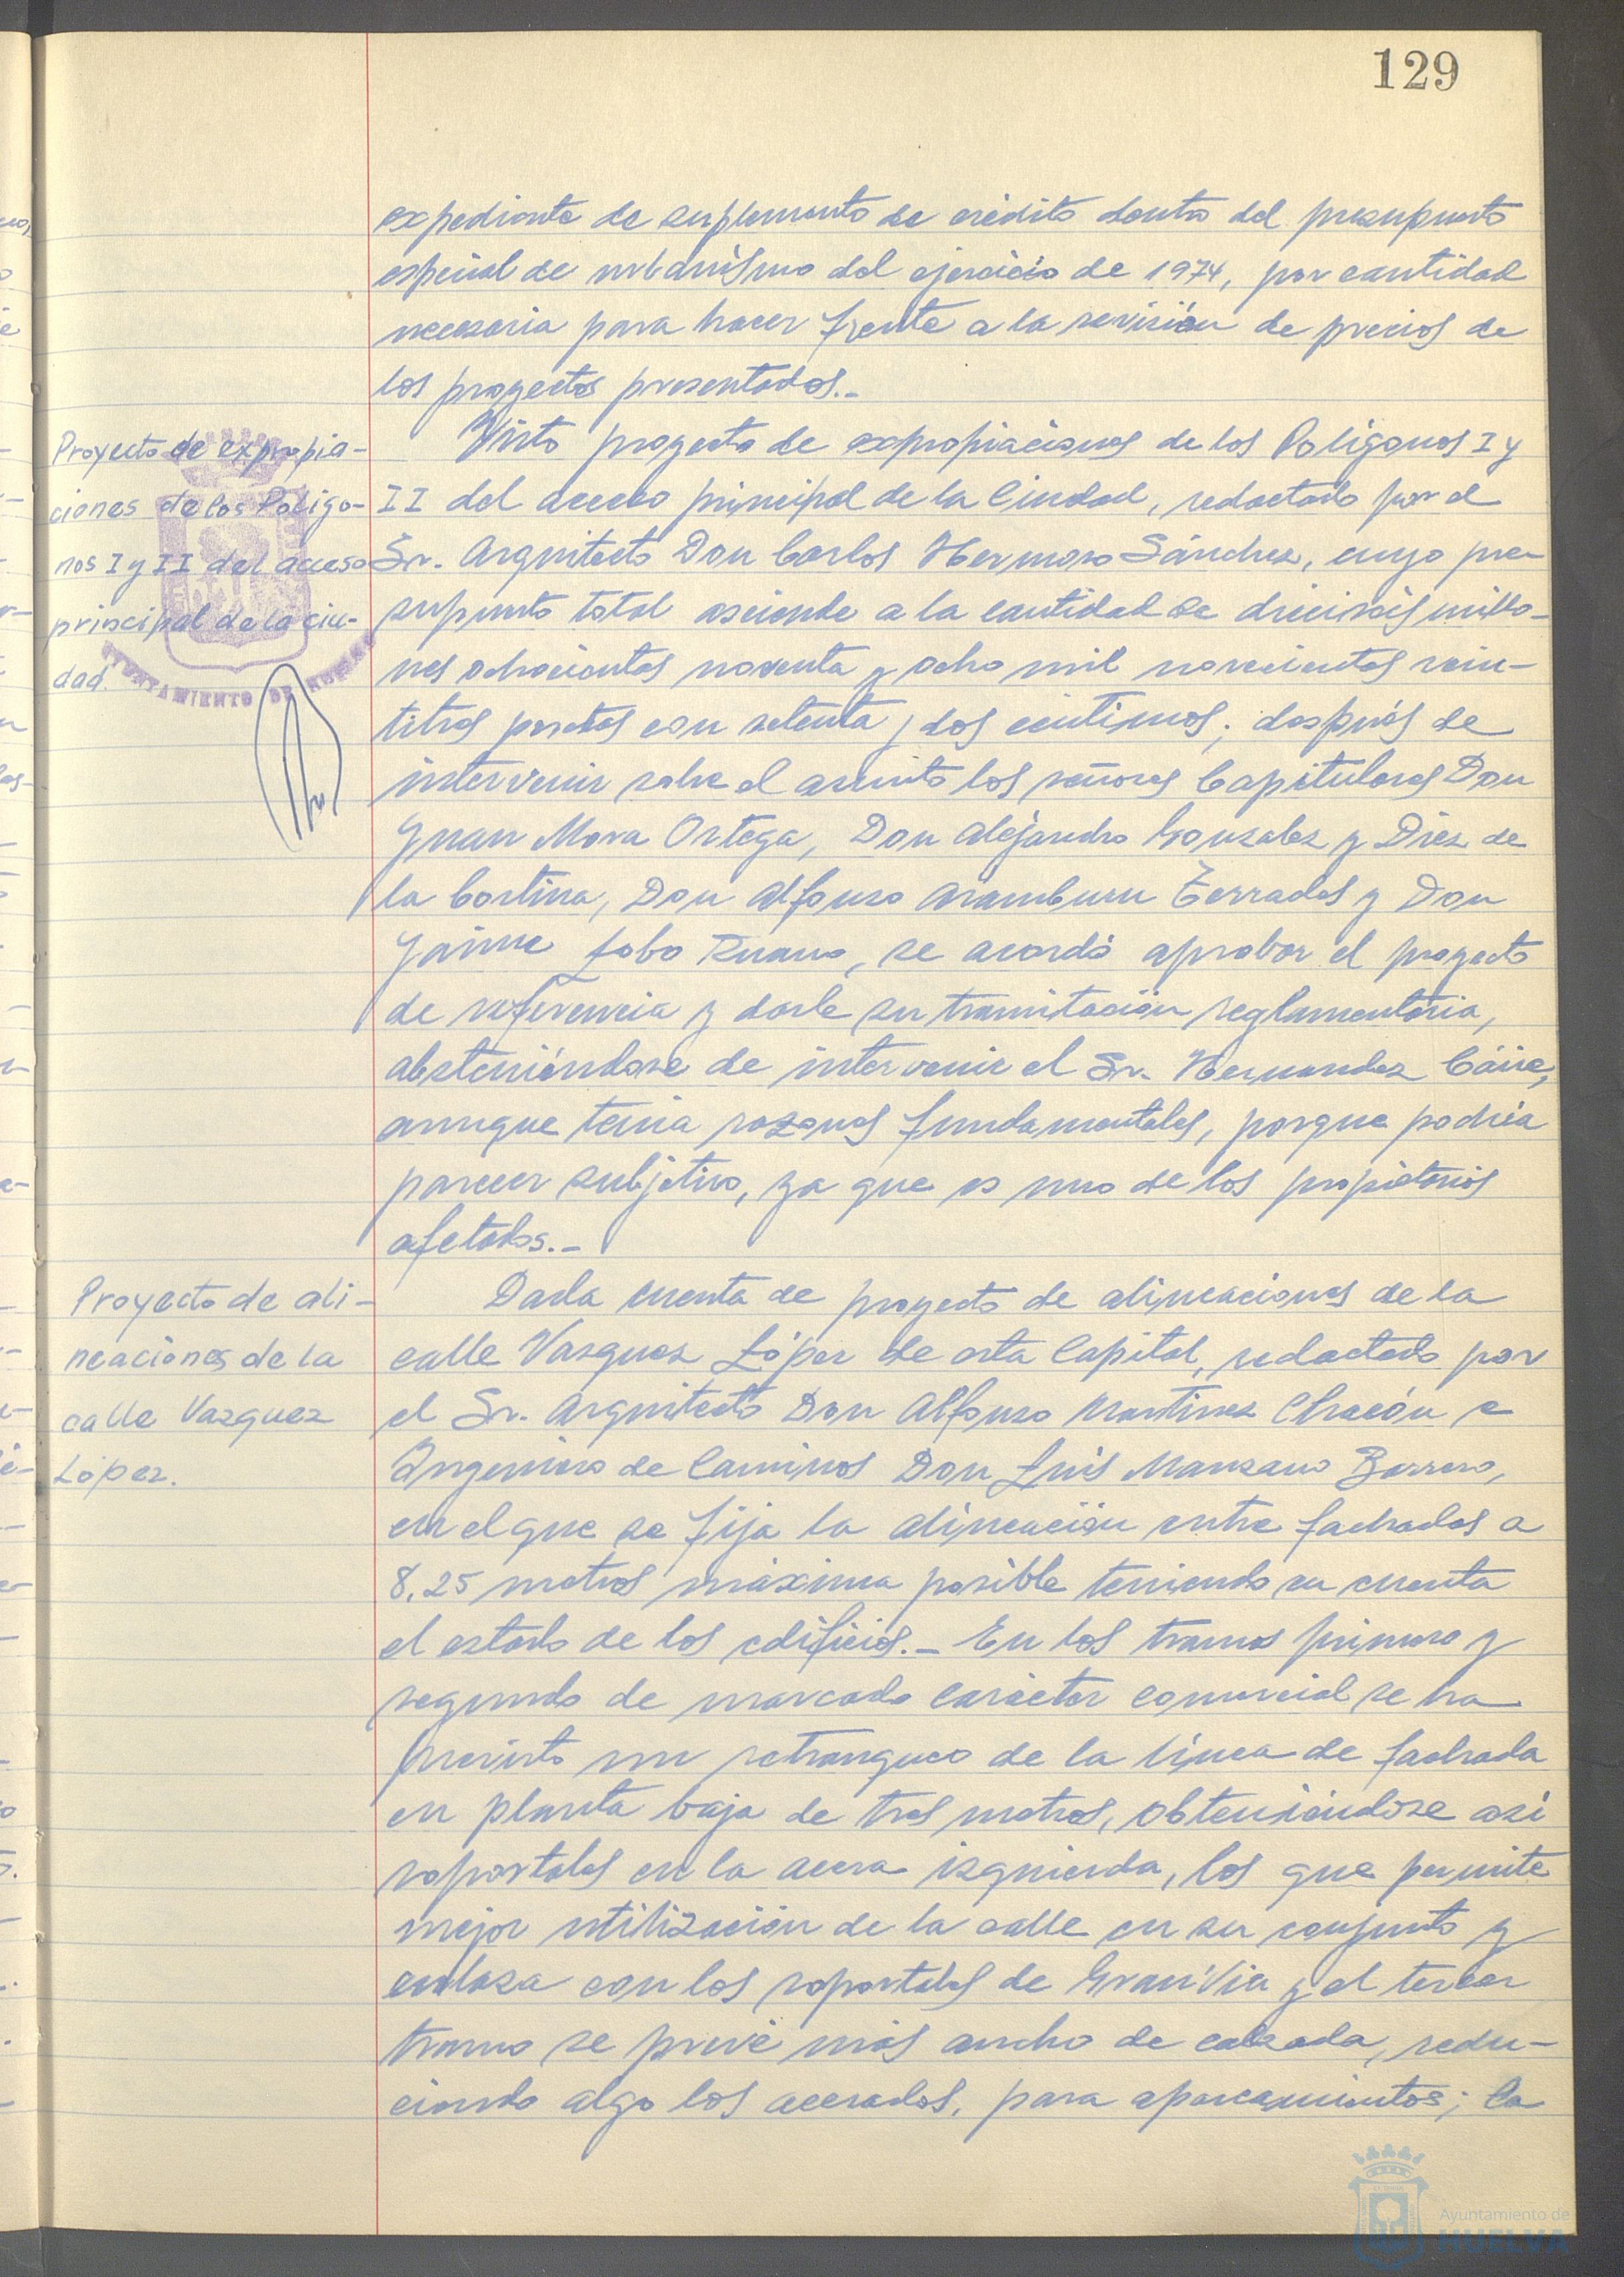 129
expediente de suplemento de crédito dentro del presupuesto
especial de urbanismo del ejercicio de 1974, por cantidad
necesaria para hacer frente a la revisión de precios de
los proyectos presentados.-
Proyecto de expropia-
ciones de los Poligo-
nos I y II del acceso
principal de la ciu-
dad.
AYUNTAMIENTO DE HUELVA
Visto proyecto de expropiaciones de los Poligonos I y
II del acceso principal de la Ciudad, redactado por el
Sr. Arquitecto Don Carlos Hermoso Sánchez, cuyo pre
supuesto total asciende a la cantidad de dieciseis millo-
nes ochocientas noventa y ocho mil novecientas vein-
titres pesetas con setenta y dos centimos; después de
intervenir sobre el asunto los señores Capitulares Don
Juan Mora Ortega, Don Alejandro Gonzalez y Diez de
la Cortina, Don Alfonso Aramburu Terrades y Don
Jaime Lobo Ruano, se acordó aprobar el proyecto
de referencia y darle su tramitación reglamentaria,
absteniéndose de intervenir el Sr. Hernandez
aunque tenia razones fundamentales, porque podria
parecer subjetivo, ya que es uno de los propietarios
afetados.-
Proyecto de ali-
neaciones de la
calle Vazquez
López.
Dada cuenta de proyecto de alineaciones de la
calle Vazquez López de esta Capital, redactado por
el Sr. Arquitecto Don Alfonso Martinez Chacón e
Ingeniero de Caminos Don Luis Manzano Borrero,
en el que se fija la alineación entre fachadas a
8,25 metros máxima posible teniendo en cuenta
el estado de los edificios.- En los tramos primero y
segundo de marcado carácter comercial se ha
previsto un retranqueo de la linea de fachada
en planta baja de tres metros, obteniéndose asi
soportales en la acera izquierda, los que permite
mejor utilización de la calle en su conjunto y
enlaza con los soportales de Gran Via y el tercer
tramo se prevé más ancho de calzada, redu-
ciendo algo los acerados, para aparcamientos; la
Ayuntamiento de
HUELVA